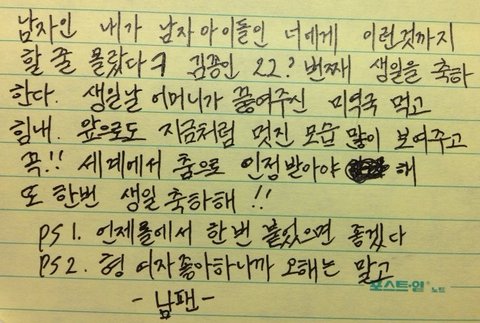 남자인 내가 남자아이돌인 너에게 이런것까지
할 줄 몰랐다ㅋ 김종인 22? 번째 생일을 축하
한다. 생일날 어머니가 끓여주신 미역국 먹고
힘내. 앞으로도 지금처럼 멋진 모습 많이 보여주고
꼭!! 세계에서 춤으로 인정받아야 해
또 한번 생일 축하해 !!
PS 1. 언제몰에서 한번 붙었으면 좋겠다
PS 2. 형 여자좋아하니까 오해는 말고
포스트·일® 노트
- 남팬 -